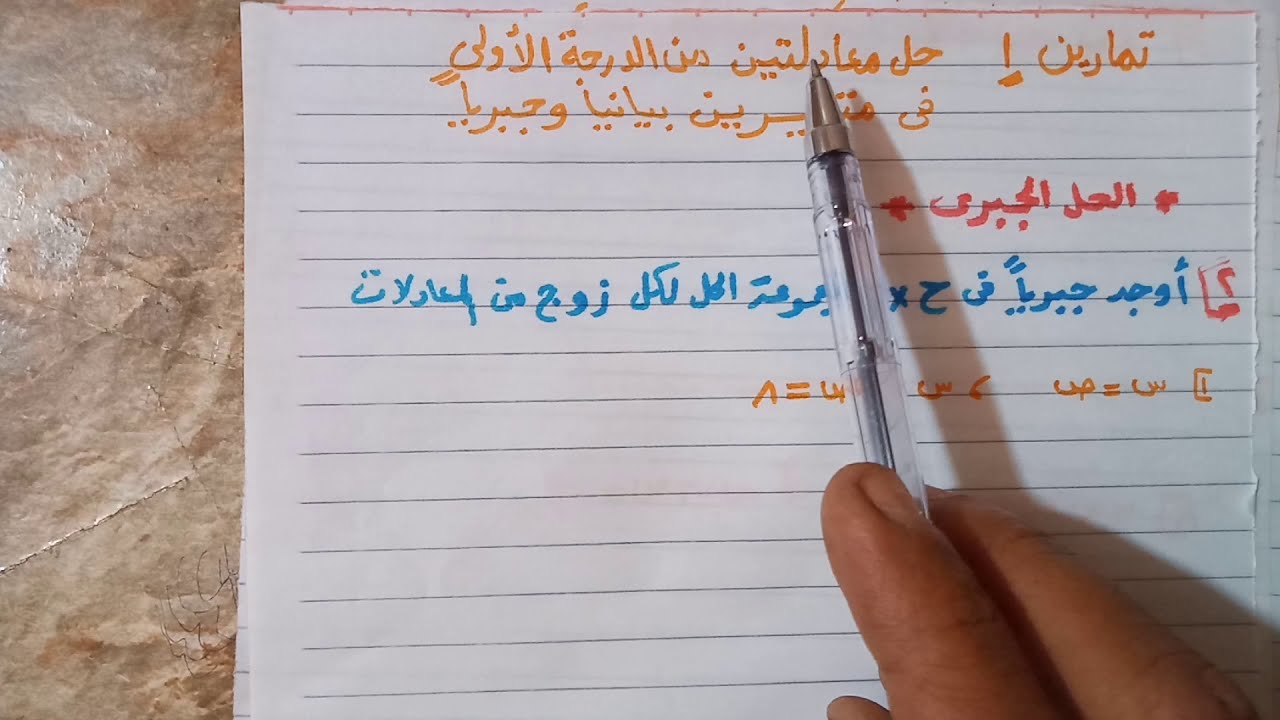 تمارين ١ حل معادلتين من الدرجة الأولى
فى بيانياً وجبرياً
* الحل الجبرى *
٢ أوجد جبرياً فى ح × الحل لكل زوج من المعادلات
١] س = ص ، س = ٨